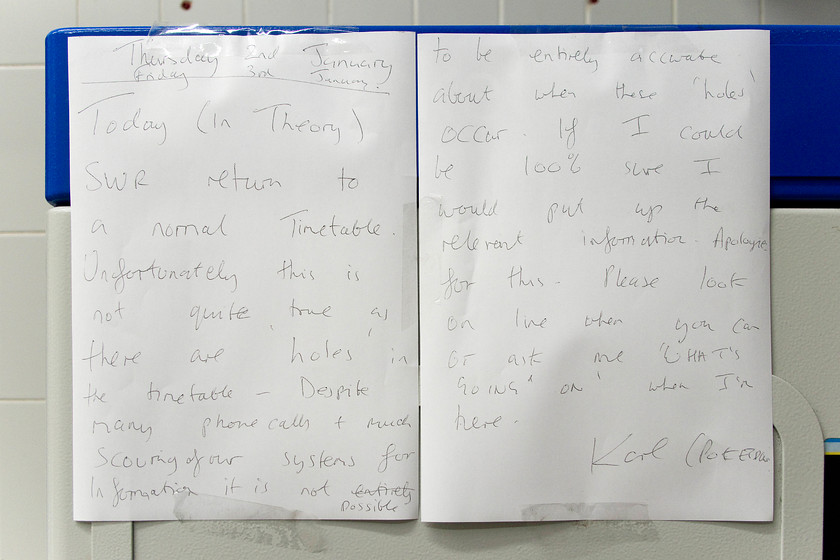 Thursday 2nd January
Friday 3rd January.
Today (In Theory)
SWR return to
a normal Timetable.
Unfortunately this is
not quite true as
there are 'holes' in
the timetable – Despite
many phone calls + much
Scouring of our systems for
Information it is not entirely
possible
to be entirely accurate
about when these 'holes'
occur. If I could
be 100% sure I
would put up the
relevant information. Apologies
for this. Please look
on line when you can
or ask me "WHAT'S
GOING" on' when I'm
here.
Karl